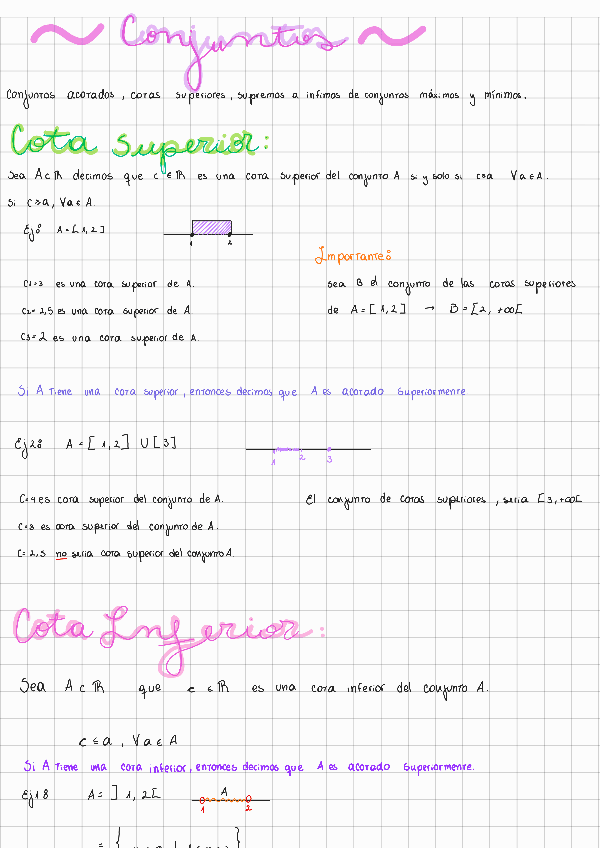 Conjuntos
Conjuntos acotados, cotas superiores, supremos a infimos de conjuntos máximos y mínimos.
Cota Superior:
Sea A⊂ℝ decimos que c ∈ ℝ es una cota superior del conjunto A si y solo si c≥a ∀a∈A.
Si c≥a, ∀a∈A.
Ej: A=[1,2]
1 2
Importante:
C1=3 es una cota superior de A.
C2=2,5 es una cota superior de A
C3=2 es una cota superior de A.
Sea B el conjunto de las cotas superiores
de A=[1,2] → B=[2,+∞[
Si A tiene una cota superior, entonces decimos que A es acotado superiormente
Ej2: A=[1,2] U [3]
1 2 3
C=4 es cota superior del conjunto de A.
C=3 es cota superior del conjunto de A.
C=2,5 no seria cota superior del conjunto A.
El conjunto de cotas superiores, seria [3,+∞[
Cota Inferior:
Sea A⊂ℝ que c ∈ ℝ es una cota inferior del conjunto A.
c≤a, ∀a∈A
Si A tiene una cota inferior, entonces decimos que A es acotado superiormente.
Ej1: A=]1,2[
A
1 2